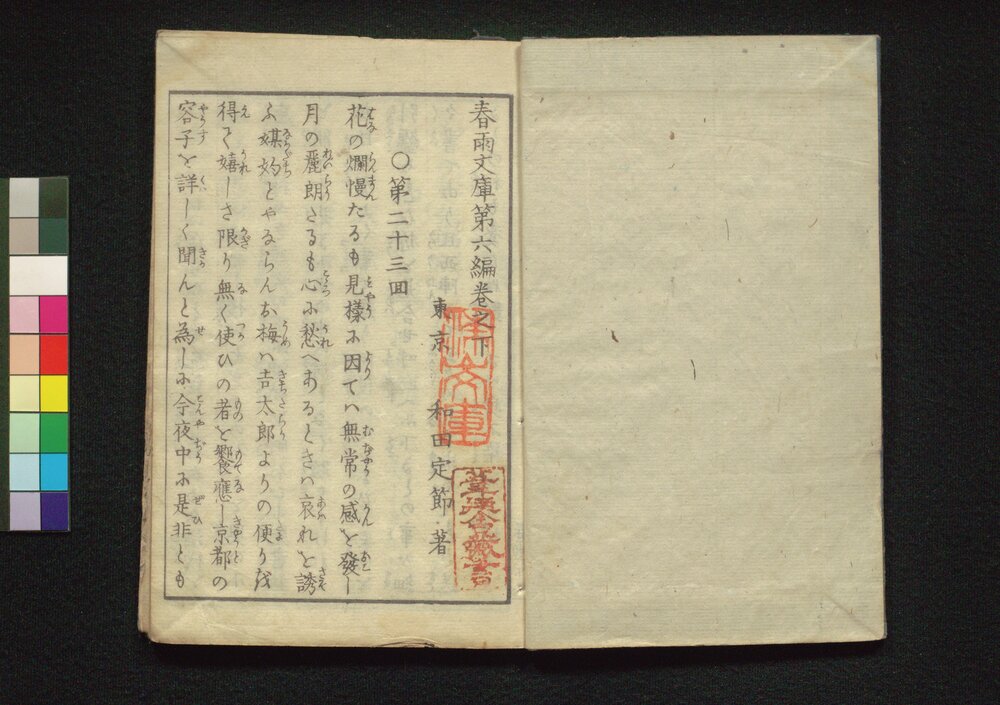 春雨文庫第六編巻之下
東京 和田定節著
○第二十三回
花の爛慢たるも見様に因てハ無常の感を發し
月の麗朗たるも心に愁へあるときハ哀れを誘
ふ媒妁とやならんお梅ハ吉太郎よりの便りを
得て嬉しさ限り無く使ひの者を饗應し京都の
容子を詳しく聞んと為しに今夜中に是非とも